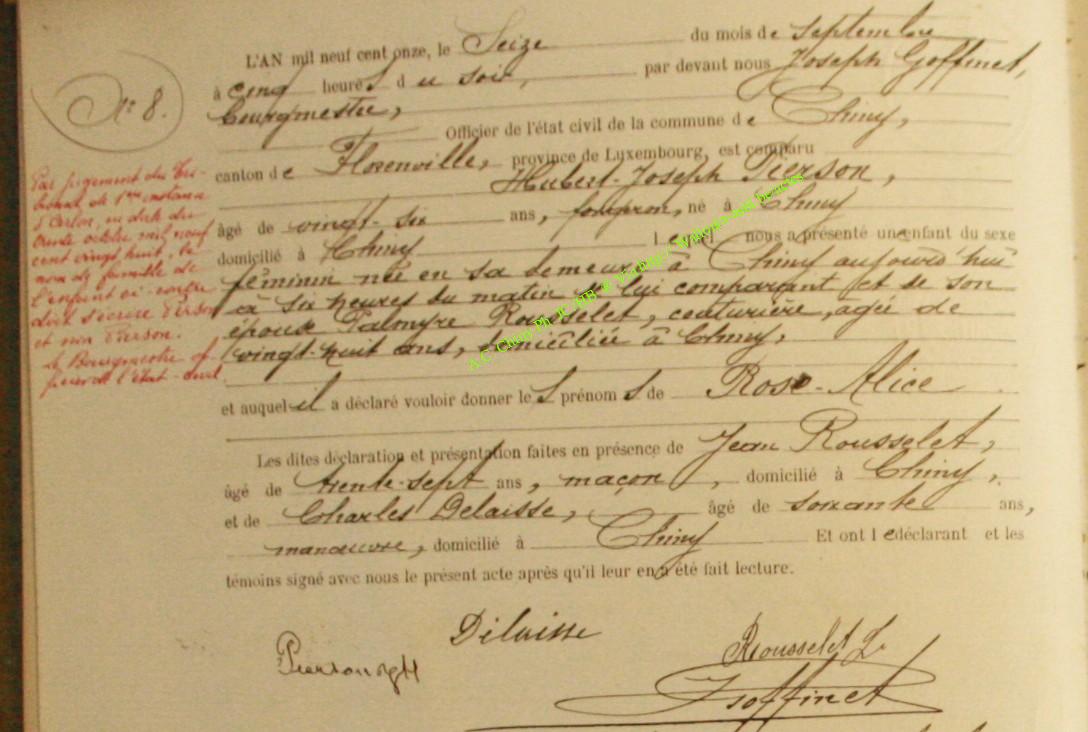 N° 8.
L'AN mil neuf cent onze, le Seize du mois de septembre
à cinq heures du soir, par devant nous Joseph Goffinet,
bourgmestre,
Officier de l'état civil de la commune de Chiny,
canton de Florenville, province de Luxembourg, est comparu
Hubert-Joseph Pierson,
âgé de vingt-six ans, forgeron, né à Chiny
domicilié à Chiny lequel nous a présenté un enfant du sexe
féminin née en sa demeure à Chiny aujourd'hui
à six heures du matin de lui comparant et de son
épouse Palmyre Rousselet, couturière, agée de
vingt-huit ans, domiciliée à Chiny,
et auquel il a déclaré vouloir donner les prénoms de Rose-Alice
Les dites déclaration et présentation faites en présence de Jean Rousselet,
âgé de trente-sept ans, maçon, domicilié à Chiny,
et de Charles Delaisse, âgé de soixante ans,
manœuvre, domicilié à Chiny Et ont le déclarant et les
témoins signé avec nous le présent acte après qu'il leur en a été fait lecture.
Par jugement du Tri-
bunal de 1ère instance
d'Arlon, en date du
trente octobre mil neuf
cent vingt huit, le
nom de famille de
l'enfant ci-contre
doit s'écrire Pirson
et non Pierson.
Le Bourgmestre of-
ficier de l'état-civil
Delaisse
Pierson
Rousselet J.
J Goffinet